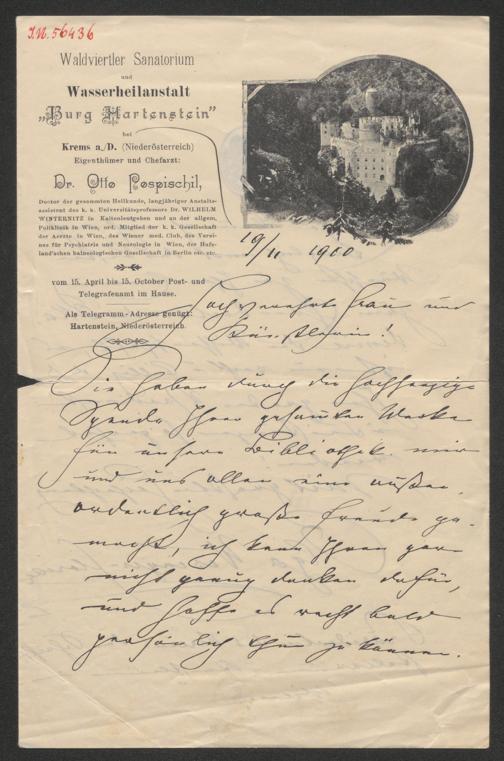 I.N. 56436
Waldviertler Sanatorium
und
Wasserheilanstalt
„Burg Hartenstein"
bei
Krems a./D. (Niederösterreich)
Eigenthümer und Chefarzt:
Dr. Otto Pospischil,
Doctor der gesammten Heilkunde, langjähriger Anstalts-
assistent des k. k. Universitätsprofessors Dr. WILHELM
WINTERNITZ in Kaltenleutgeben und an der allgem.
Poliklinik in Wien, ord. Mitglied der k. k. Gesellschaft
der Aerzte in Wien, des Wiener med. Club, des Verei-
nes für Psychiatrie und Neurologie in Wien, der Hufe-
land'schen balneologischen Gesellschaft in Berlin etc. etc.
vom 15. April bis 15. October Post- und
Telegrafenamt im Hause.
Als Telegramm-Adresse genügt:
Hartenstein, Niederösterreich.
19/11 1900
Hochverehrte Frau und
Künstlerin!
Sie haben durch die hochherzige
Spende Ihrer gesamten Werke
für unsere Bibliothek mir
und uns allen eine außer-
ordentlich große Freude ge-
macht, ich kann Ihnen gar
nicht genug danken dafür,
und hoffe es recht bald
persönlich thun zu können.